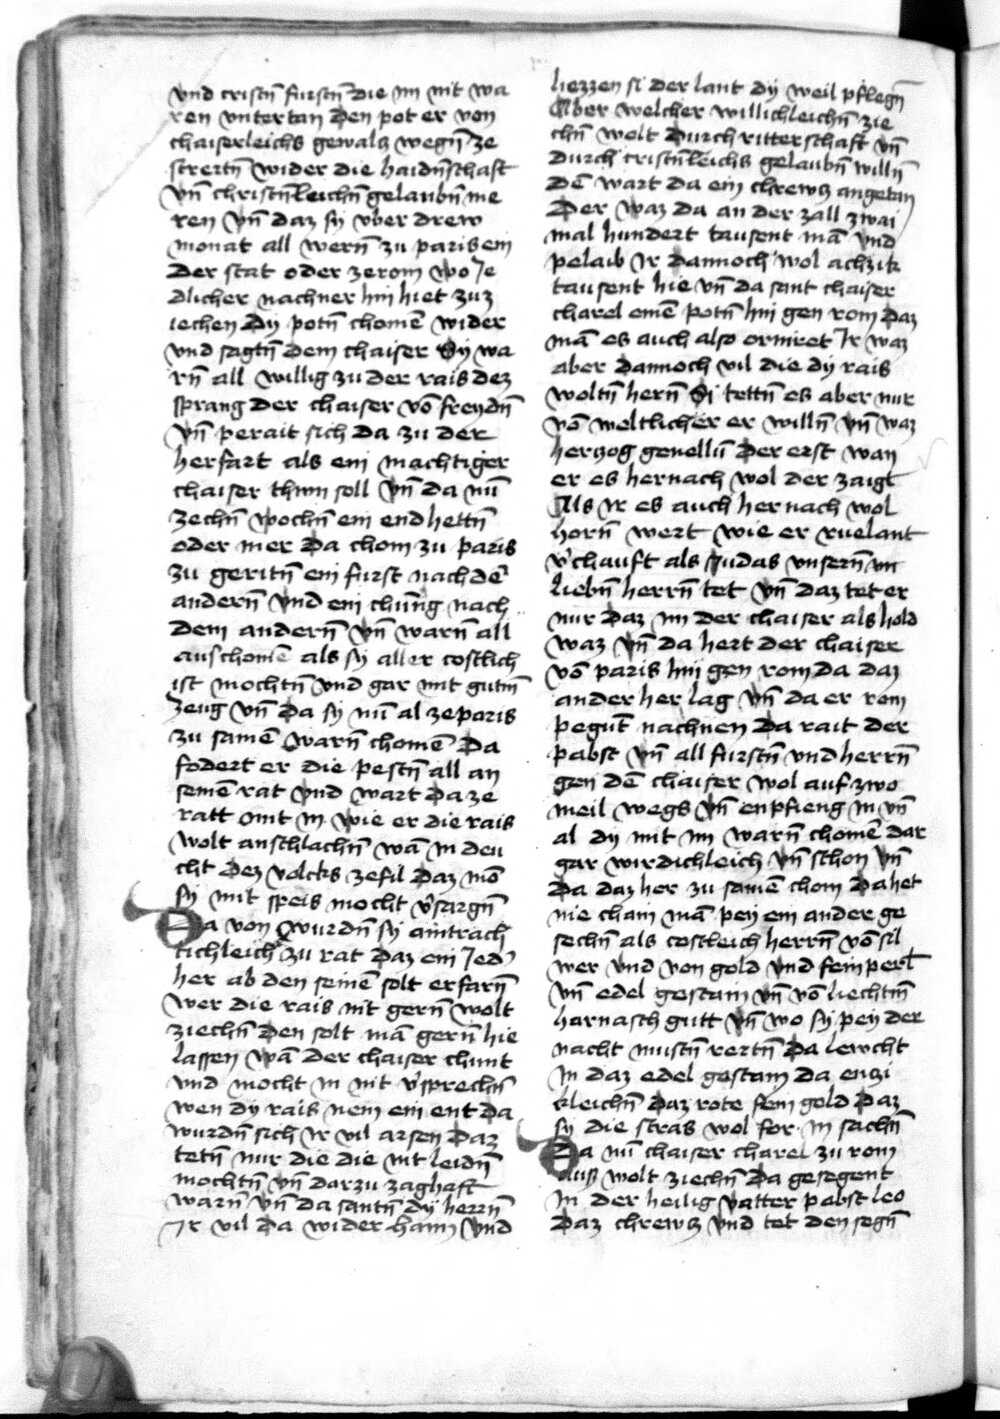 vnd cristn̄ furstn̄ die im nit wa
ren vntertan den pot er von
chaiserleichs gewalcz wegn̄ ze
streitn̄ wider die haidn̄schaft
vn̄ christn̄leichn̄ gelaubn̄ me
ren vn̄ daz sy vber drew
monat all wern̄ zu paris ein
der stat oder ze rom wo Je
dlicher nachner hin hiet zuz
iechen dy potn̄ chomē wider
vnd sagtn̄ dem chaiser Sy wa
rn̄ all willig zu der rais dez
sprang der chaiser vō freydn̄
vn̄ perait sich da zu der
herfart als ein machtiger
chaiser thun soll vn̄ da nū
zechn̄ wochn̄ ein end hettn̄
oder mer Da chom zu paris
zu geritn̄ ein furst nach dē
andern̄ vnd ein chunig nach
dem andern̄ vn̄ warn̄ all
aus chomē als sy aller costlich
ist mochtn̄ vnd gar mit gutm̄
zeug vn̄ Da sy nū al ze paris
zu samē warn̄ chomē Da
fodert er die pestn̄ all an
seinē rat vnd wart Da ze
ratt mit in wie er die rais
wolt anschlachn̄ wā in deu
cht dez volcks ze fil Daz mō
sy mit speis mocht v̄sargn̄
Da von wurdn̄ sy aintrach
tichleich zu rat Daz ein Jed
her ab den seinē solt erfarn̄
wer die rais nit gern̄ wolt
ziechn̄ den solt mā gern̄ hie
lassen wā der chaiser chunt
vnd mocht in nit v̄sprechn̄
wen dy rais nem ein ent Da
wurdn̄ sich Jr vil arsen Daz
tetn̄ nur die die nit leidn̄
mochtn̄ vn̄ darzu zaghaft
warn̄ vn̄ da santn̄ dy herrn̄
Jr vil Da wider haim vnd
liezzen si der lant dy weil pflegn̄
Aber welcher willichleichn̄ zie
chn̄ wolt Durch ritterschaft vn̄
durch cristn̄leichs gelaubn̄ willn̄
Dē wart da ein chrewcz angetan
Der waz da an der zall zwai
mal hundert tausent mā vnd
pelaib Jr dannoch wol achzik
tausent hie vn̄ da sant chaiser
charel einē potn̄ hin gen rom Daz
mā es auch also orniret Jr waz
aber dannoch vil die dy rais
woltn̄ hern̄ Si tettn̄ es aber nur
vō weltlicher er willn̄ vn̄ waz
herczog genellū Der erst wan
er es hernach wol der zaigt
Als Jr es auch her nach wol
horn̄ wert wie er ruelant
v̄chauft als Judas vnsern̄ vn
liebn̄ herrn̄ tet vn̄ Daz tet er
nur Daz im der chaiser als hold
waz vn̄ da hert der chaiser
vō paris hin gen rom da daz
ander her lag vn̄ da er rom
pegūt nachnen Da rait der
pabst vn̄ all furstn̄ vnd herrn̄
gen dē chaiser wol auf zwo
meil wegs vn̄ enpfieng in vn̄
al dy mit im warn̄ chomē dar
gar wirdichleich vn̄ schon vn̄
Da daz her zu samē chom Da het
nie chain mā pey ein ander ge
sechn̄ als costleich herrn̄ vō sil
wer vnd von gold vnd fein perl
vn̄ edel gestain vn̄ vō liechtm̄
harnasch gutt vn̄ wo sy pey der
nacht mustn̄ reitn̄ Da lewcht
in daz edel gestain da enzi
kleichn̄ Daz rote fein gold Daz
sy die stras wol for in sachn̄
Da nū chaiser charel zu rom
auß wolt ziechn̄ Da gesegent
in der heilig vatter pabst leo
Daz chrewcz vnd tet den segn̄